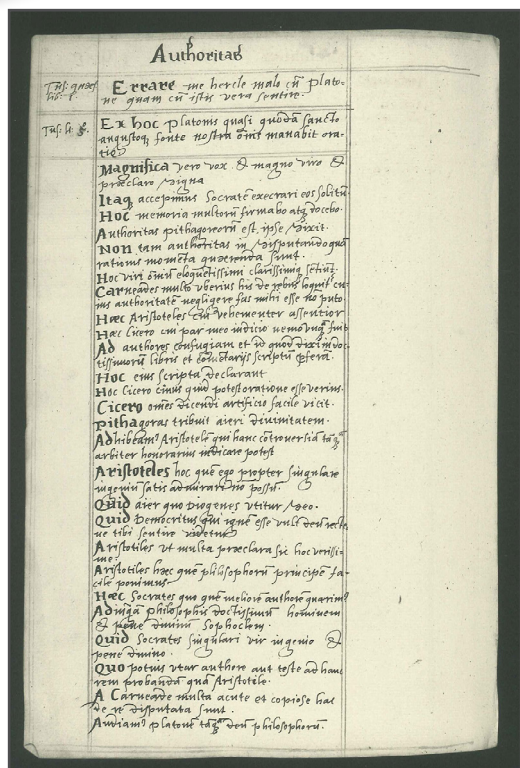 Authoritas
Tus: quaes
lib:
Errare me hercle malo cū Plato-
ne quam cū istis vera sentire.
Tus: li:
Ex hoc Platonis quasi quodā sancto
augustoq; fonte nostra om̄is manabit ora-
tio
Magnifica vero vox & magno viro &
præclaro digna
Itaq accepimus Socratē execrari eos solitū
Hoc memoria multorū firmabo atq docebo.
Authoritas pithagoreorū est, ipse dixit.
Non tam authoritas in disputando quā
rationis momēta quærenda sunt.
Hoc viri om̄iū eloquētissimi clarissimiq
Carneades multo uberius his de rebus loquit
ius authoritatē negligere fas mihi esse nō puto.
Hæc Aristoteles cui vehementer assentior
Hæc Cicero cui par meo iudicio nemo
Ad authores confugiam et id quod dixi in doc-
tissimorū libris et scriptū
Hoc eius scripta declarant
Hoc Cicero cuius quid potest oratione esse verius.
Cicero om̄es dicendi artificio facile vicit.
Pithagoras tribuit aieri divinitatem.
Adhibeam Aristotelē qui hanc cōtroversiā
arbiter honorarius iudicare potest
Aristoteles hoc quē ego propter singulare
ingeniū satis admirari nō possū.
Quid aier quo Diogenes utitur deo.
Quid Democritus qui ignē esse vult deū recte
ne tibi sentire videtur
Aristotiles ut multa præclara sic hoc verissi-
me.
Aristotiles hæc quē philosophorū principē fa-
cile ponimus
Hæc Socrates quo quē meliorē authorē quærim9
Ad philosophū doctissimū hominem
& pene divinū Sophoclem.
Quid Socrates singulari vir ingenio &
pene divino.
Quo potius utar authore aut teste ad hanc
rem probandā quā Aristotile.
A Carneade multa acute et copiose hac
de re disputata sunt.
Audiam9 Platonē deū philosophorū.